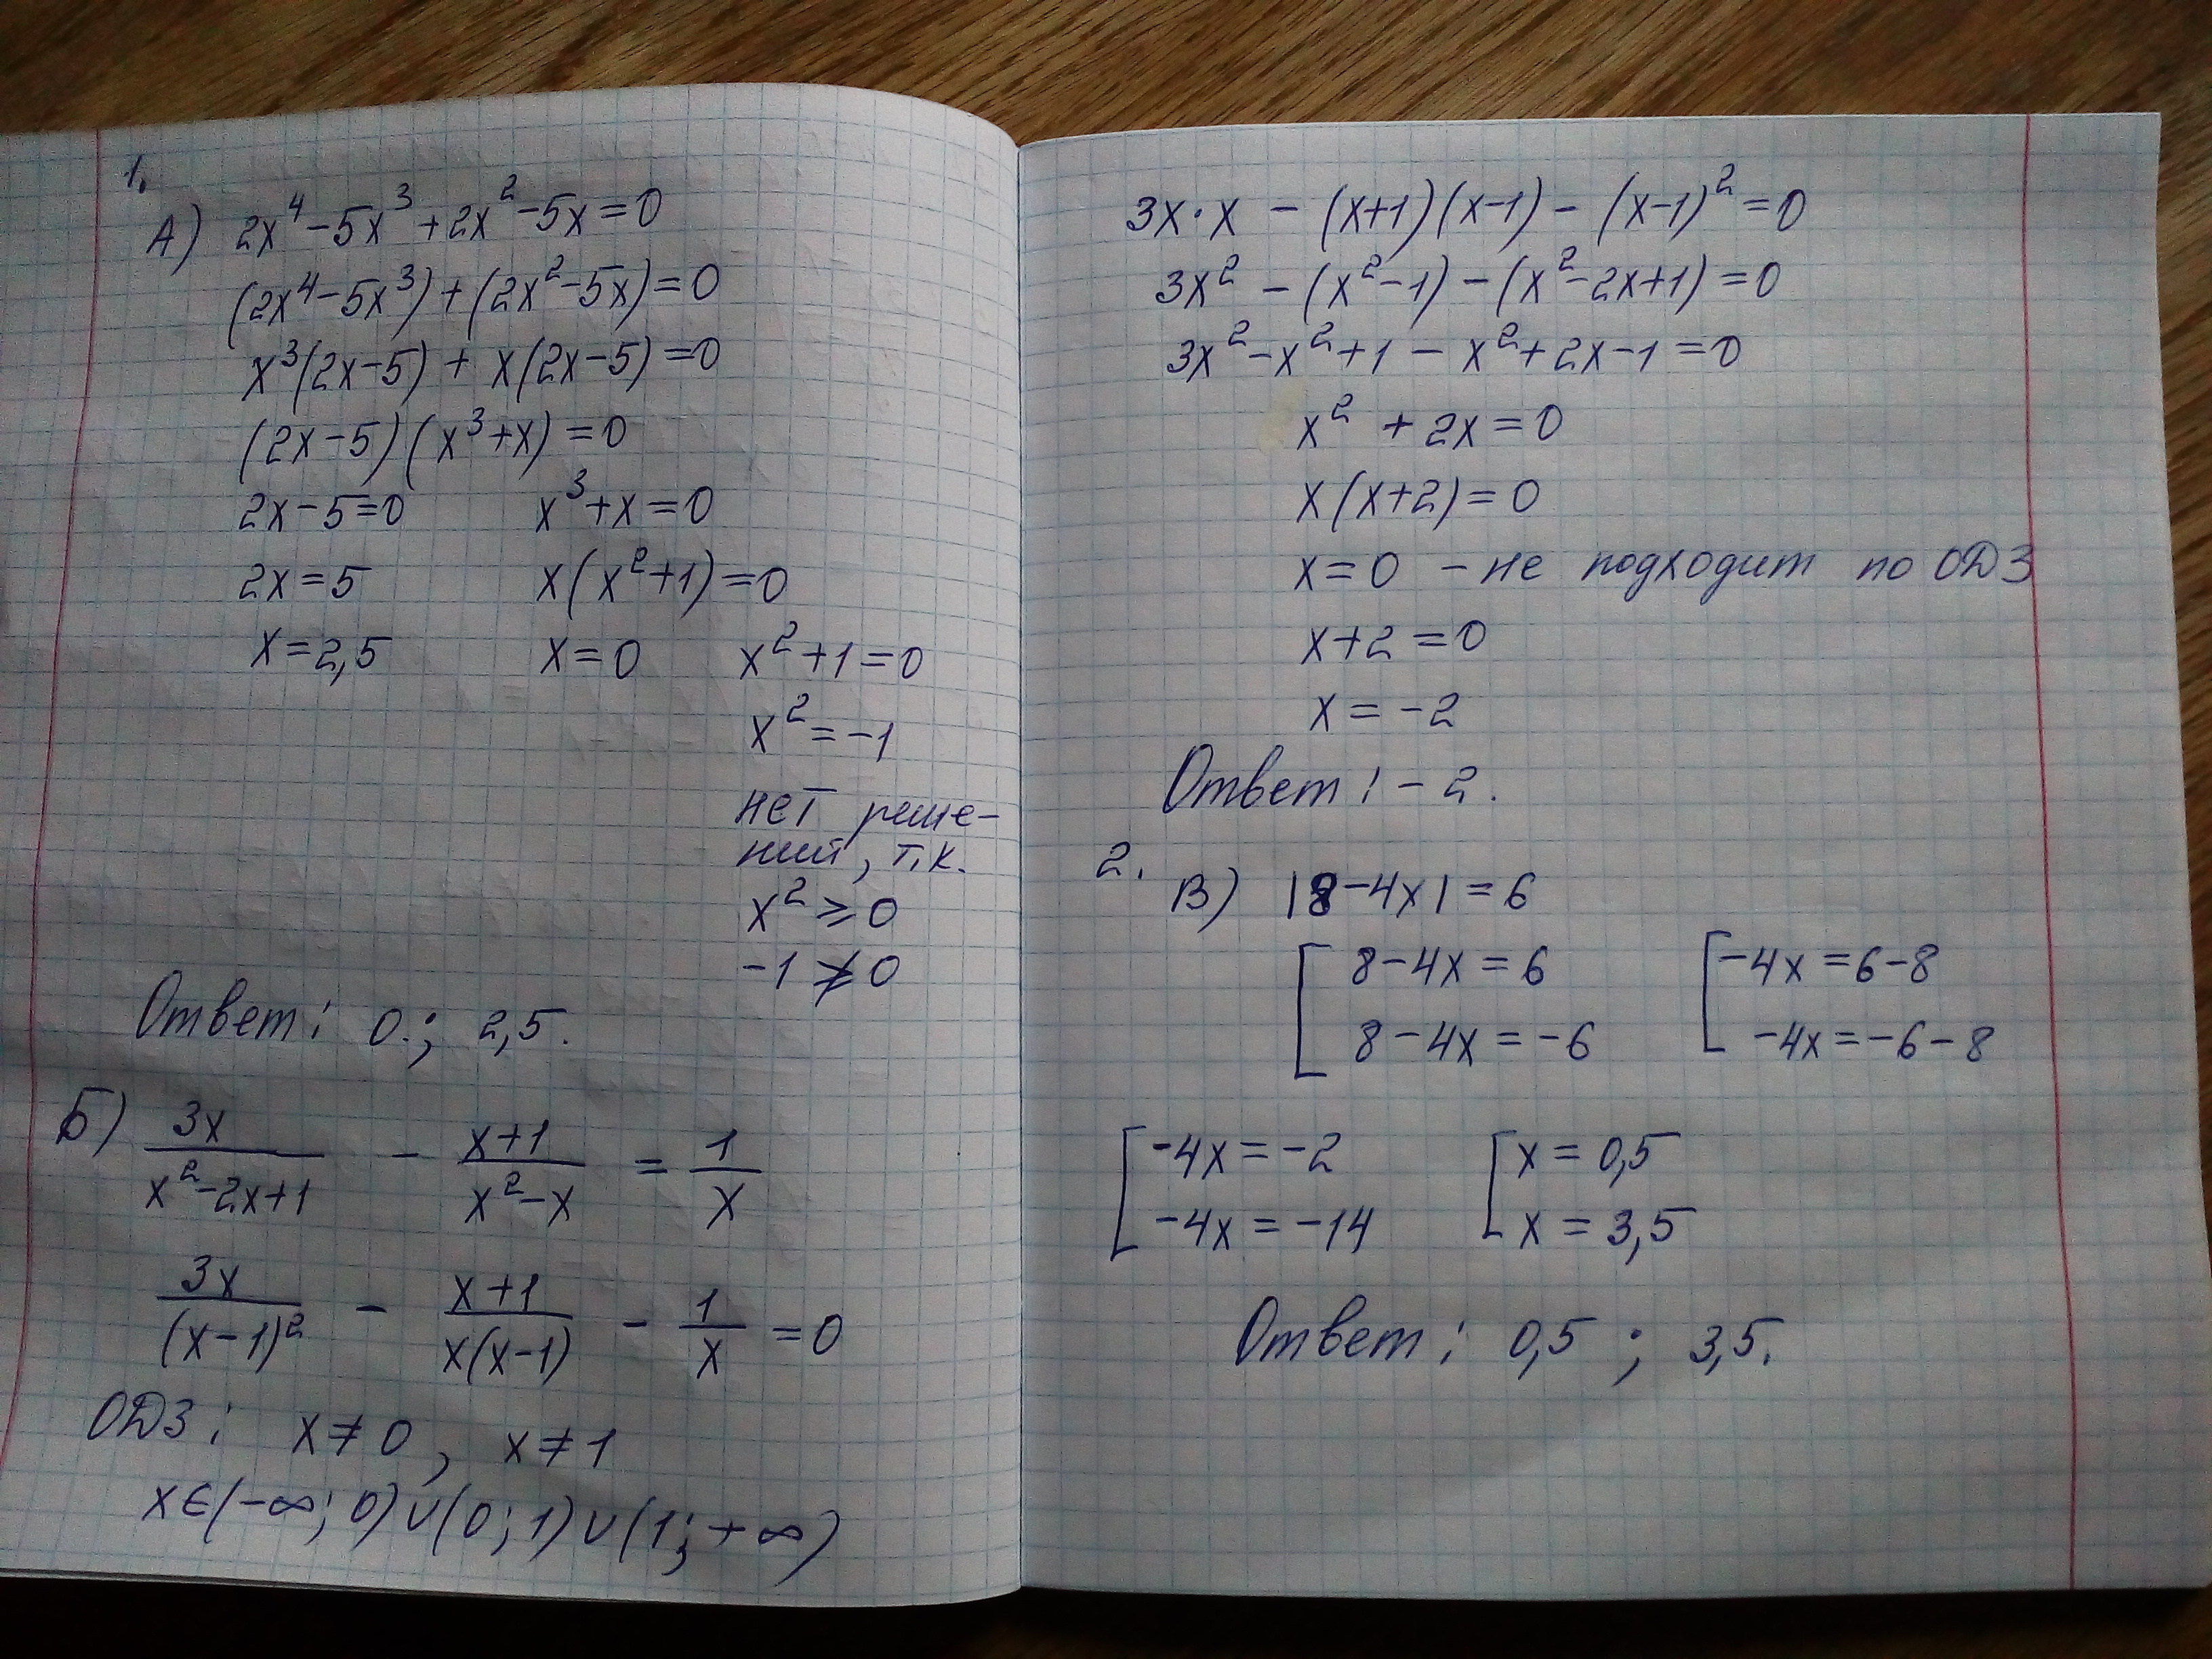 1.
А) 2x⁴-5x³+2x²-5x=0
(2x⁴-5x³)+(2x²-5x)=0
x³(2x-5) + x(2x-5)=0
(2x-5)(x³+x)=0
2x-5=0 x³+x=0
2x=5 x(x²+1)=0
x=2,5 x=0 x²+1=0
x²=-1
нет реше-
ний, т.к.
x²⩾0
-1⩾̸0
Ответ: 0; 2,5.
Б) 3x/(x²-2x+1) - (x+1)/(x²-x) = 1/x
3x/(x-1)² - (x+1)/(x(x-1)) - 1/x =0
ОДЗ: x≠0, x≠1
x∈(-∞; 0)∪(0; 1)∪(1; +∞)
3x·x - (x+1)(x-1)- (x-1)²=0
3x² - (x²-1) - (x²-2x+1)=0
3x²-x²+1 - x²+2x-1=0
x² +2x=0
x(x+2)=0
x=0 - не подходит по ОДЗ
x+2=0
x=-2
Ответ: -2.
2.
В) |8-4x|=6
[ 8-4x=6 [ -4x=6-8
8-4x=-6 -4x=-6-8
[ -4x=-2 [ x=0,5
-4x=-14 x=3,5
Ответ: 0,5 ; 3,5.